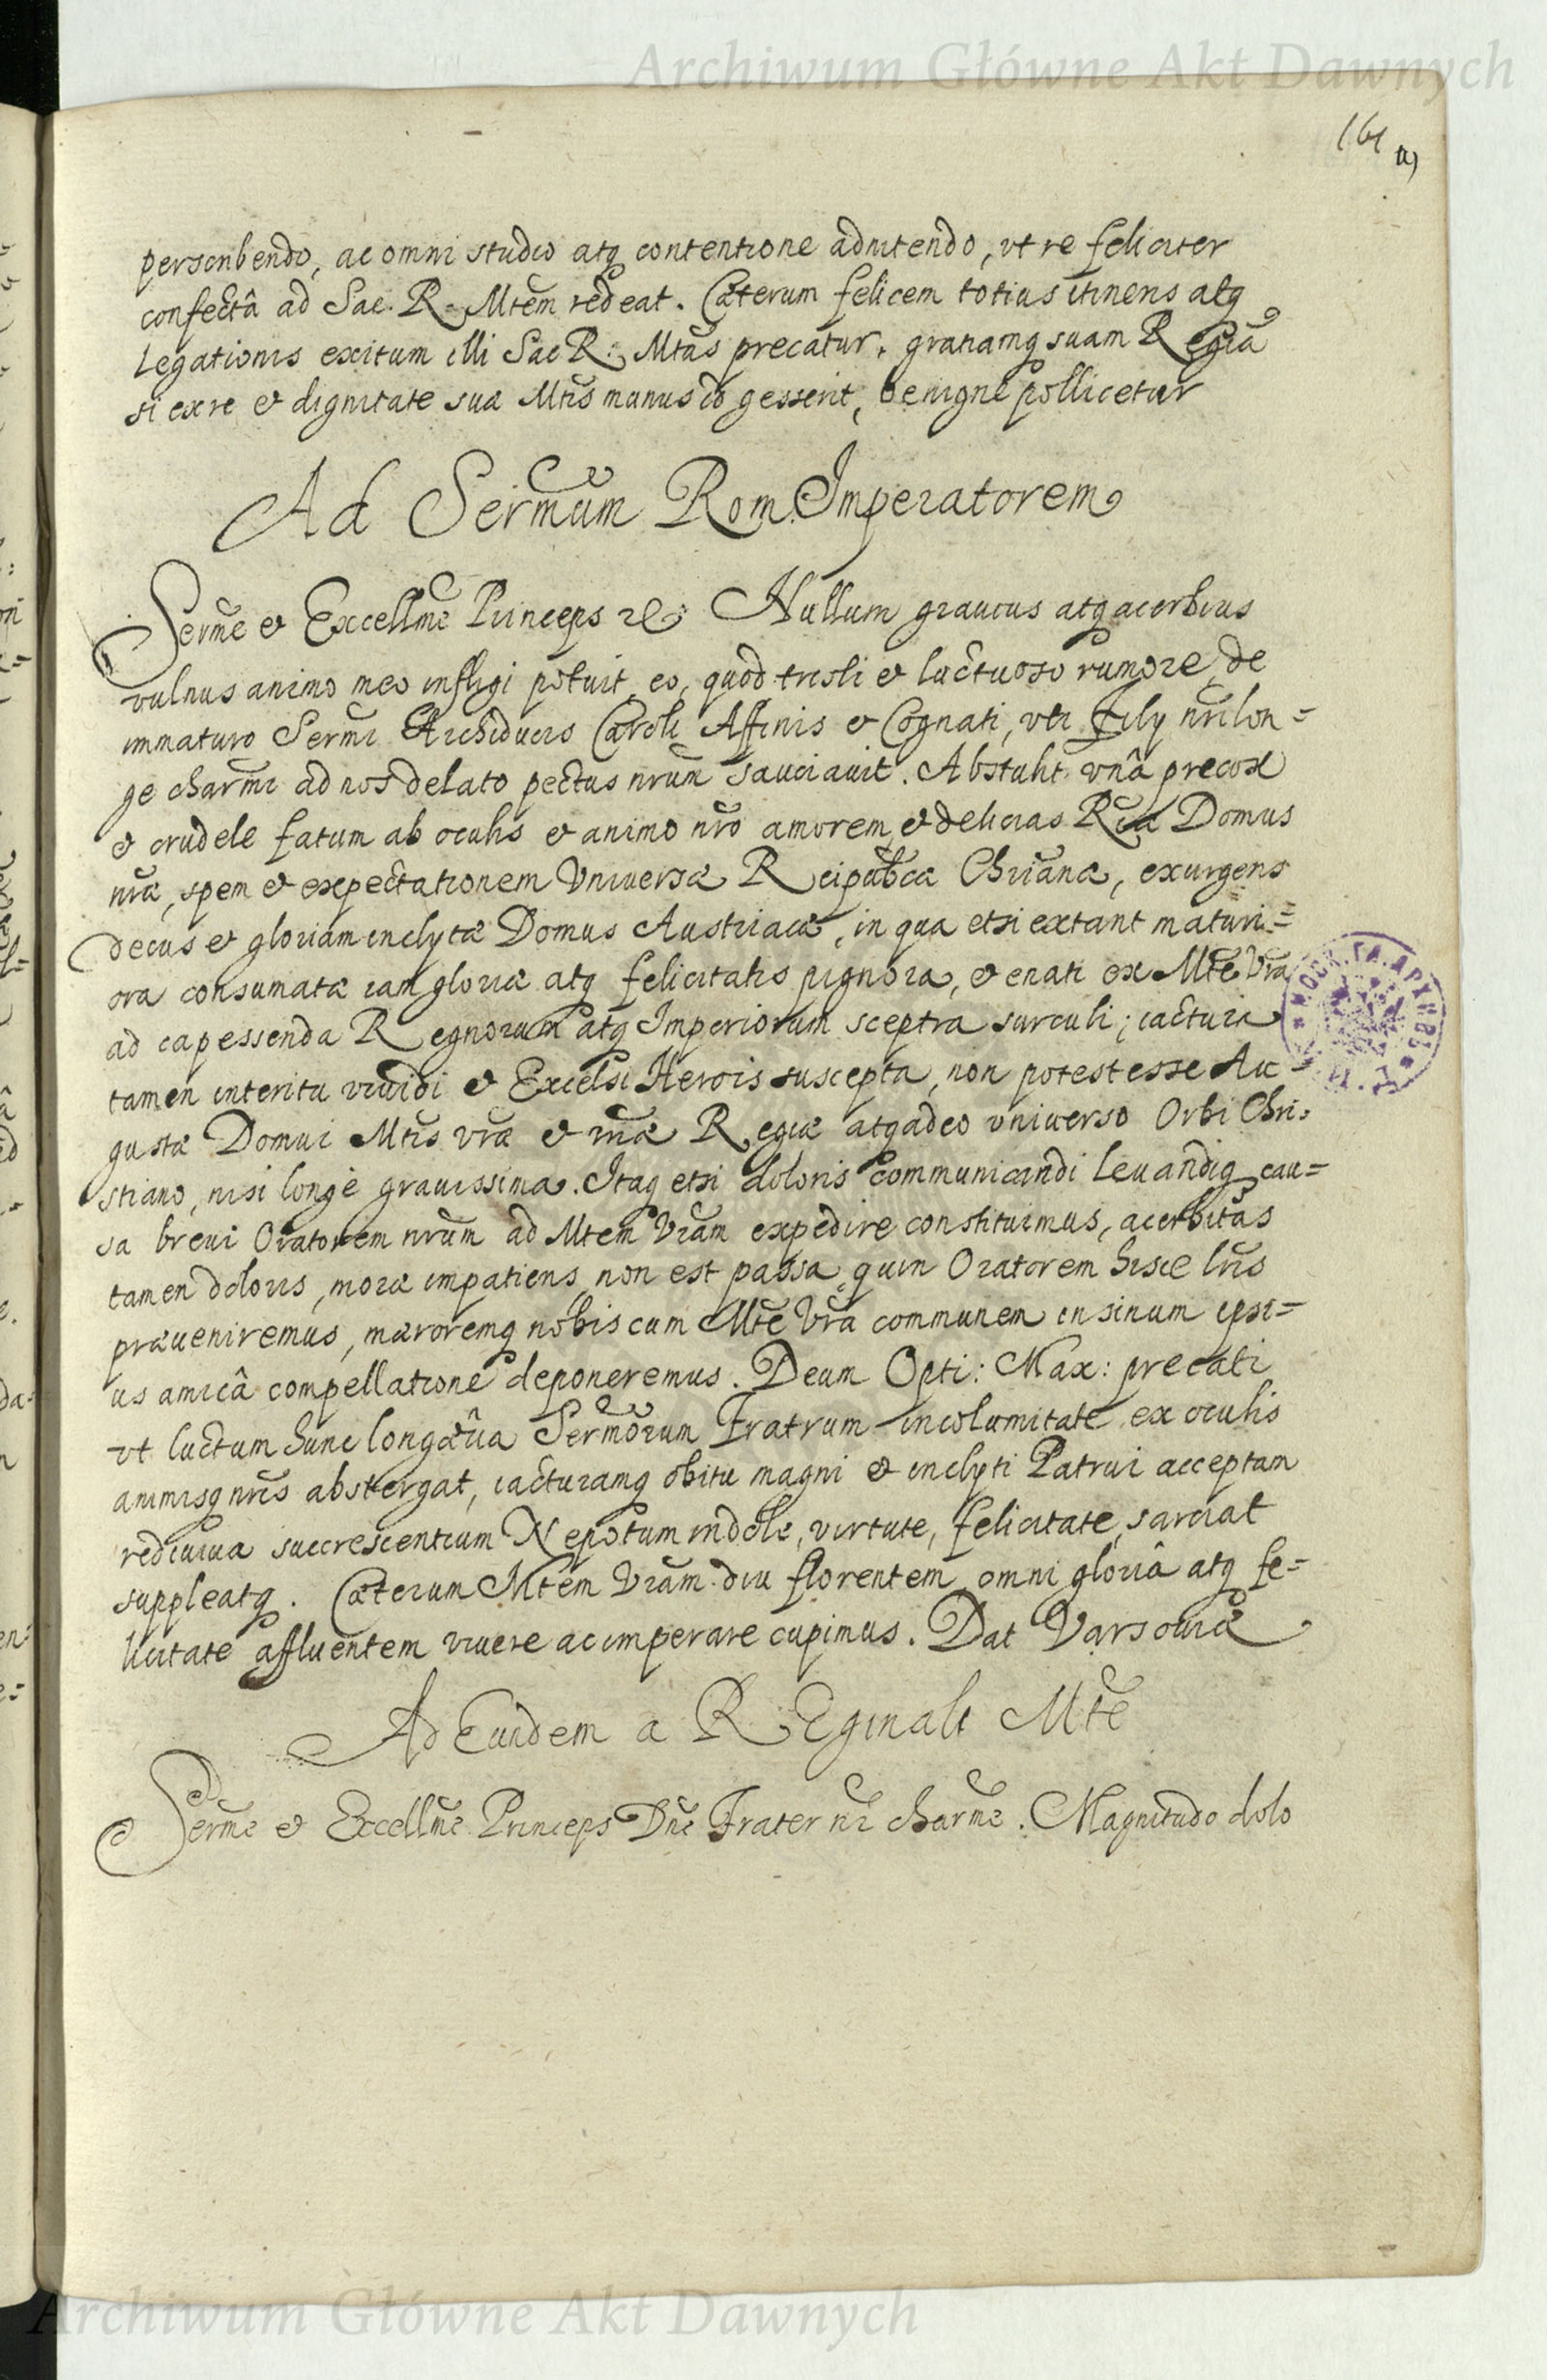 Archiwum Główne Akt Dawnych
161
perscribendo, ac omni studio atq contentione adnitendo, vt re feliciter
confectâ ad Sac. R. Mtem redeat. Cæterum felicem totius itineris atq
Legationis exitum illi Sac R: Mtas precatur, gratiamq suam Regiã
si ex re et dignitate suæ Mtis munus id gesserit, benigne pollicetur
Ad Sermum Rom. Imperatorem
Serme et Excellme Princeps etc: Nullum grauius atq acerbius
vulnus animo meo infligi potuit, eo, quod tristi et luctuoso rumore, de
immaturo Sermi Archiducis Caroli Affinis et Cognati, vti Filij nri lon=
ge charmi ad nos delato pectus nrum sauciauit. Abstulit vnâ precox
et crudele fatum ab oculis et animo nro amorem, et delicias Riæ Domus
nræ, spem et expectationem Vniuersæ Reipubcæ Chrianæ, exurgens
decus et gloriam inclytæ Domus Austriacæ, in qua etsi extant maturi=
ora consumatæ iam gloriæ atq felicitatis pignora, et enati ex Mte Vra
ad capessenda Regnorum atq Imperiorum sceptra surculi; iactura
tamen interitu viuidi et Excelsi Herois suscepta, non potest esse Au=
gustæ Domui Mtis vræ et nræ Regiæ atq adeo vniuerso Orbi Chri=
stiano, nisi longè grauissima. Itaq etsi doloris communicandi leuandiq cau=
sa breui Oratorem nrum ad Mtem Vram expedire constituimus, acerbitas
tamen doloris, moræ impatiens, non est passa, quin Oratorem hisce lris
præueniremus, mæroremq nobis cum Mte Vra communem in sinum ipsi=
us amicâ compellatione deponeremus. Deum Opti: Max: precati
vt luctum hunc longæua Sermorum Fratrum incolumitate ex oculis
animisq nris abstergat, iacturamq obitu magni et inclyti Patrui acceptam
rediuiua succrescentium Nepotum indole, virtute, felicitate, sarciat
suppleatq. Cæterum Mtem Vram diu florentem, omni gloriâ atq fe=
licitate affluentem viuere ac imperare cupimus. Dat Varsouiæ
Ad Eundem a Reginali Mte
Serme et Excellme Princeps Dne Frater nr charme. Magnitudo dolo
Archiwum Główne Akt Dawnych